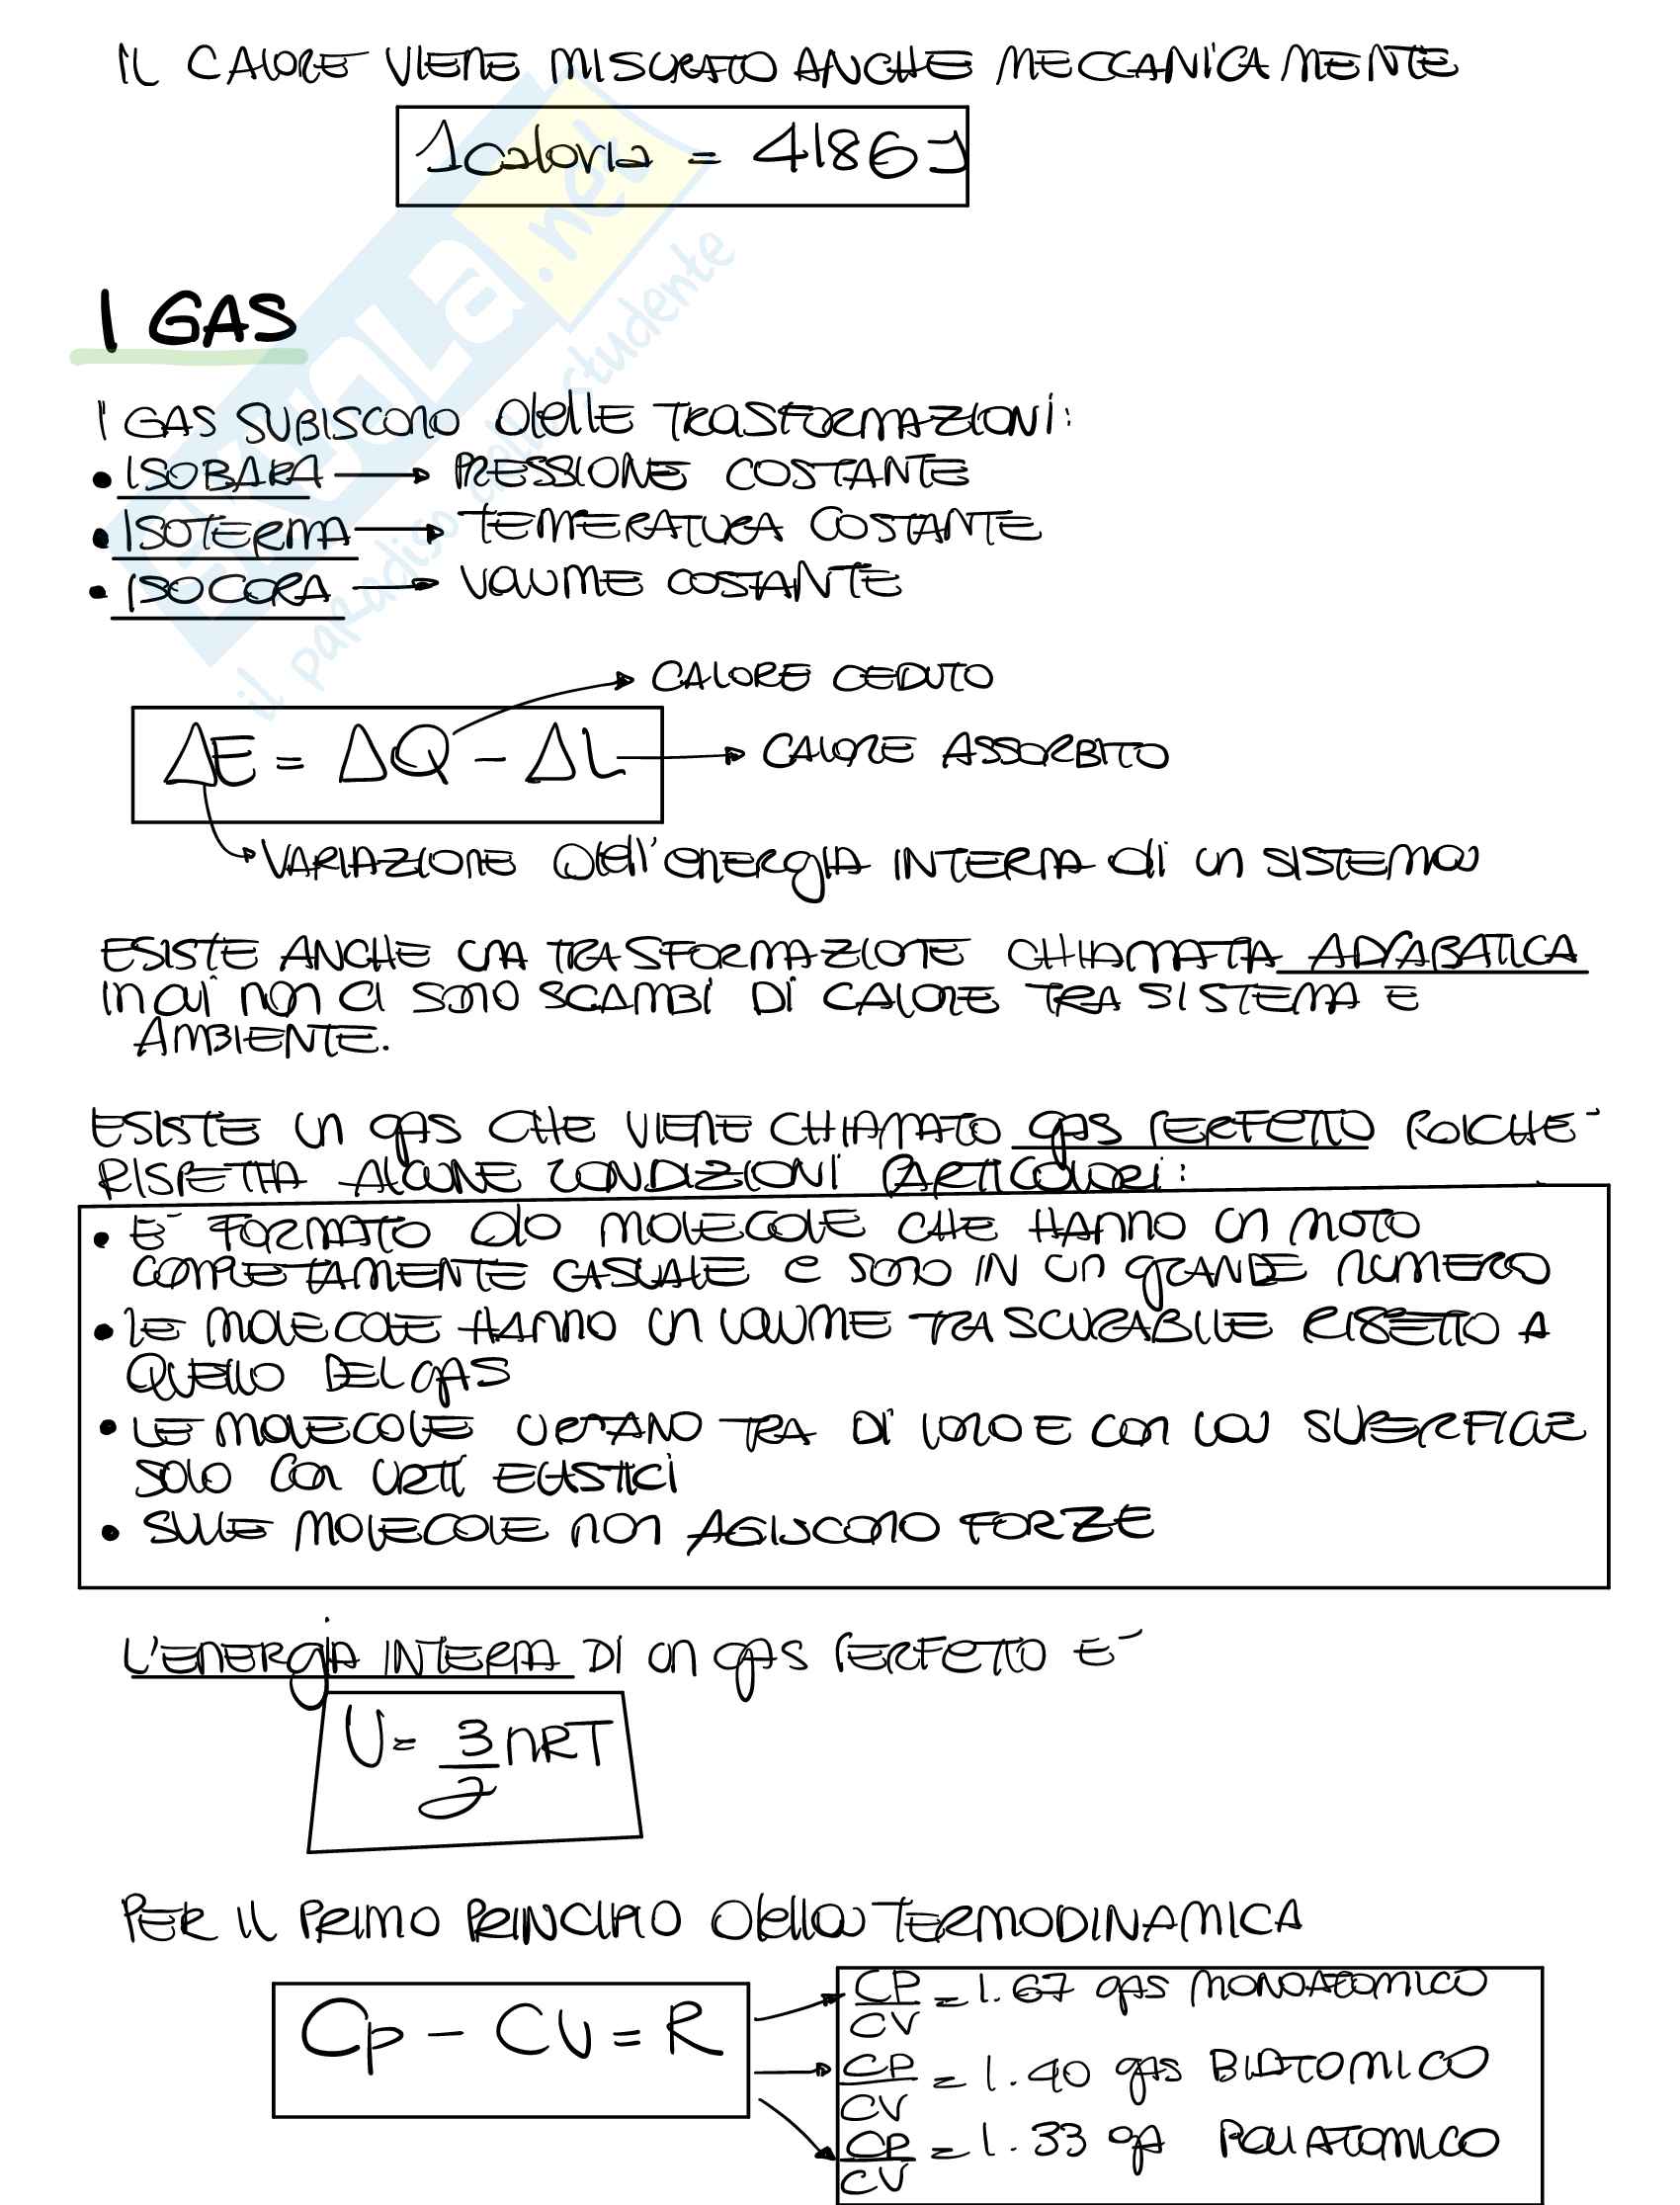 IL CALORE VIENE MISURATO ANCHE MECCANICAMENTE
1caloria = 4186J
I GAS
I GAS SUBISCONO delle TRASFORMAZIONI:
• ISOBARA → PRESSIONE COSTANTE
• ISOTERMA → TEMPERATURA COSTANTE
• ISOCORA → VOLUME COSTANTE
CALORE CEDUTO
ΔE = ΔQ - ΔL → CALORE ASSORBITO
VARIAZIONE dell'energia INTERNA di un SISTEMA
ESISTE ANCHE UNA TRASFORMAZIONE CHIAMATA ADIABATICA
in cui non ci sono SCAMBI DI CALORE TRA SISTEMA E
AMBIENTE.
ESISTE un gas CHE VIENE CHIAMATO gas PERFETTO POICHE'
RISPETTA ALCUNE CONDIZIONI PARTICOLARI:
• E' FORMATO da MOLECOLE CHE HANNO UN MOTO
COMPLETAMENTE CASUALE e sono IN un gRANDE NUMERO
• LE MOLECOLE HANNO UN VOLUME TRASCURABILE RISPETTO A
QUELLO DEL gAS
• LE MOLECOLE URTANO TRA DI LORO E con la SUPERFICIE
SOLO con URTI ELASTICI
• SULLE MOLECOLE non AGISCONO FORZE
L'ENERgIA INTERNA DI un gAS PERFETTO E'
U = 3/2 nRT
PER IL PRIMO PRINCIPIO della TERMODINAMICA
Cp - CV = R
CP/CV = 1.67 gas MONOATOMICO
CP/CV = 1.40 gas BIATOMICO
CP/CV = 1.33 ga POLIATOMICO
SKUOLA.net
il paradiso dello studente